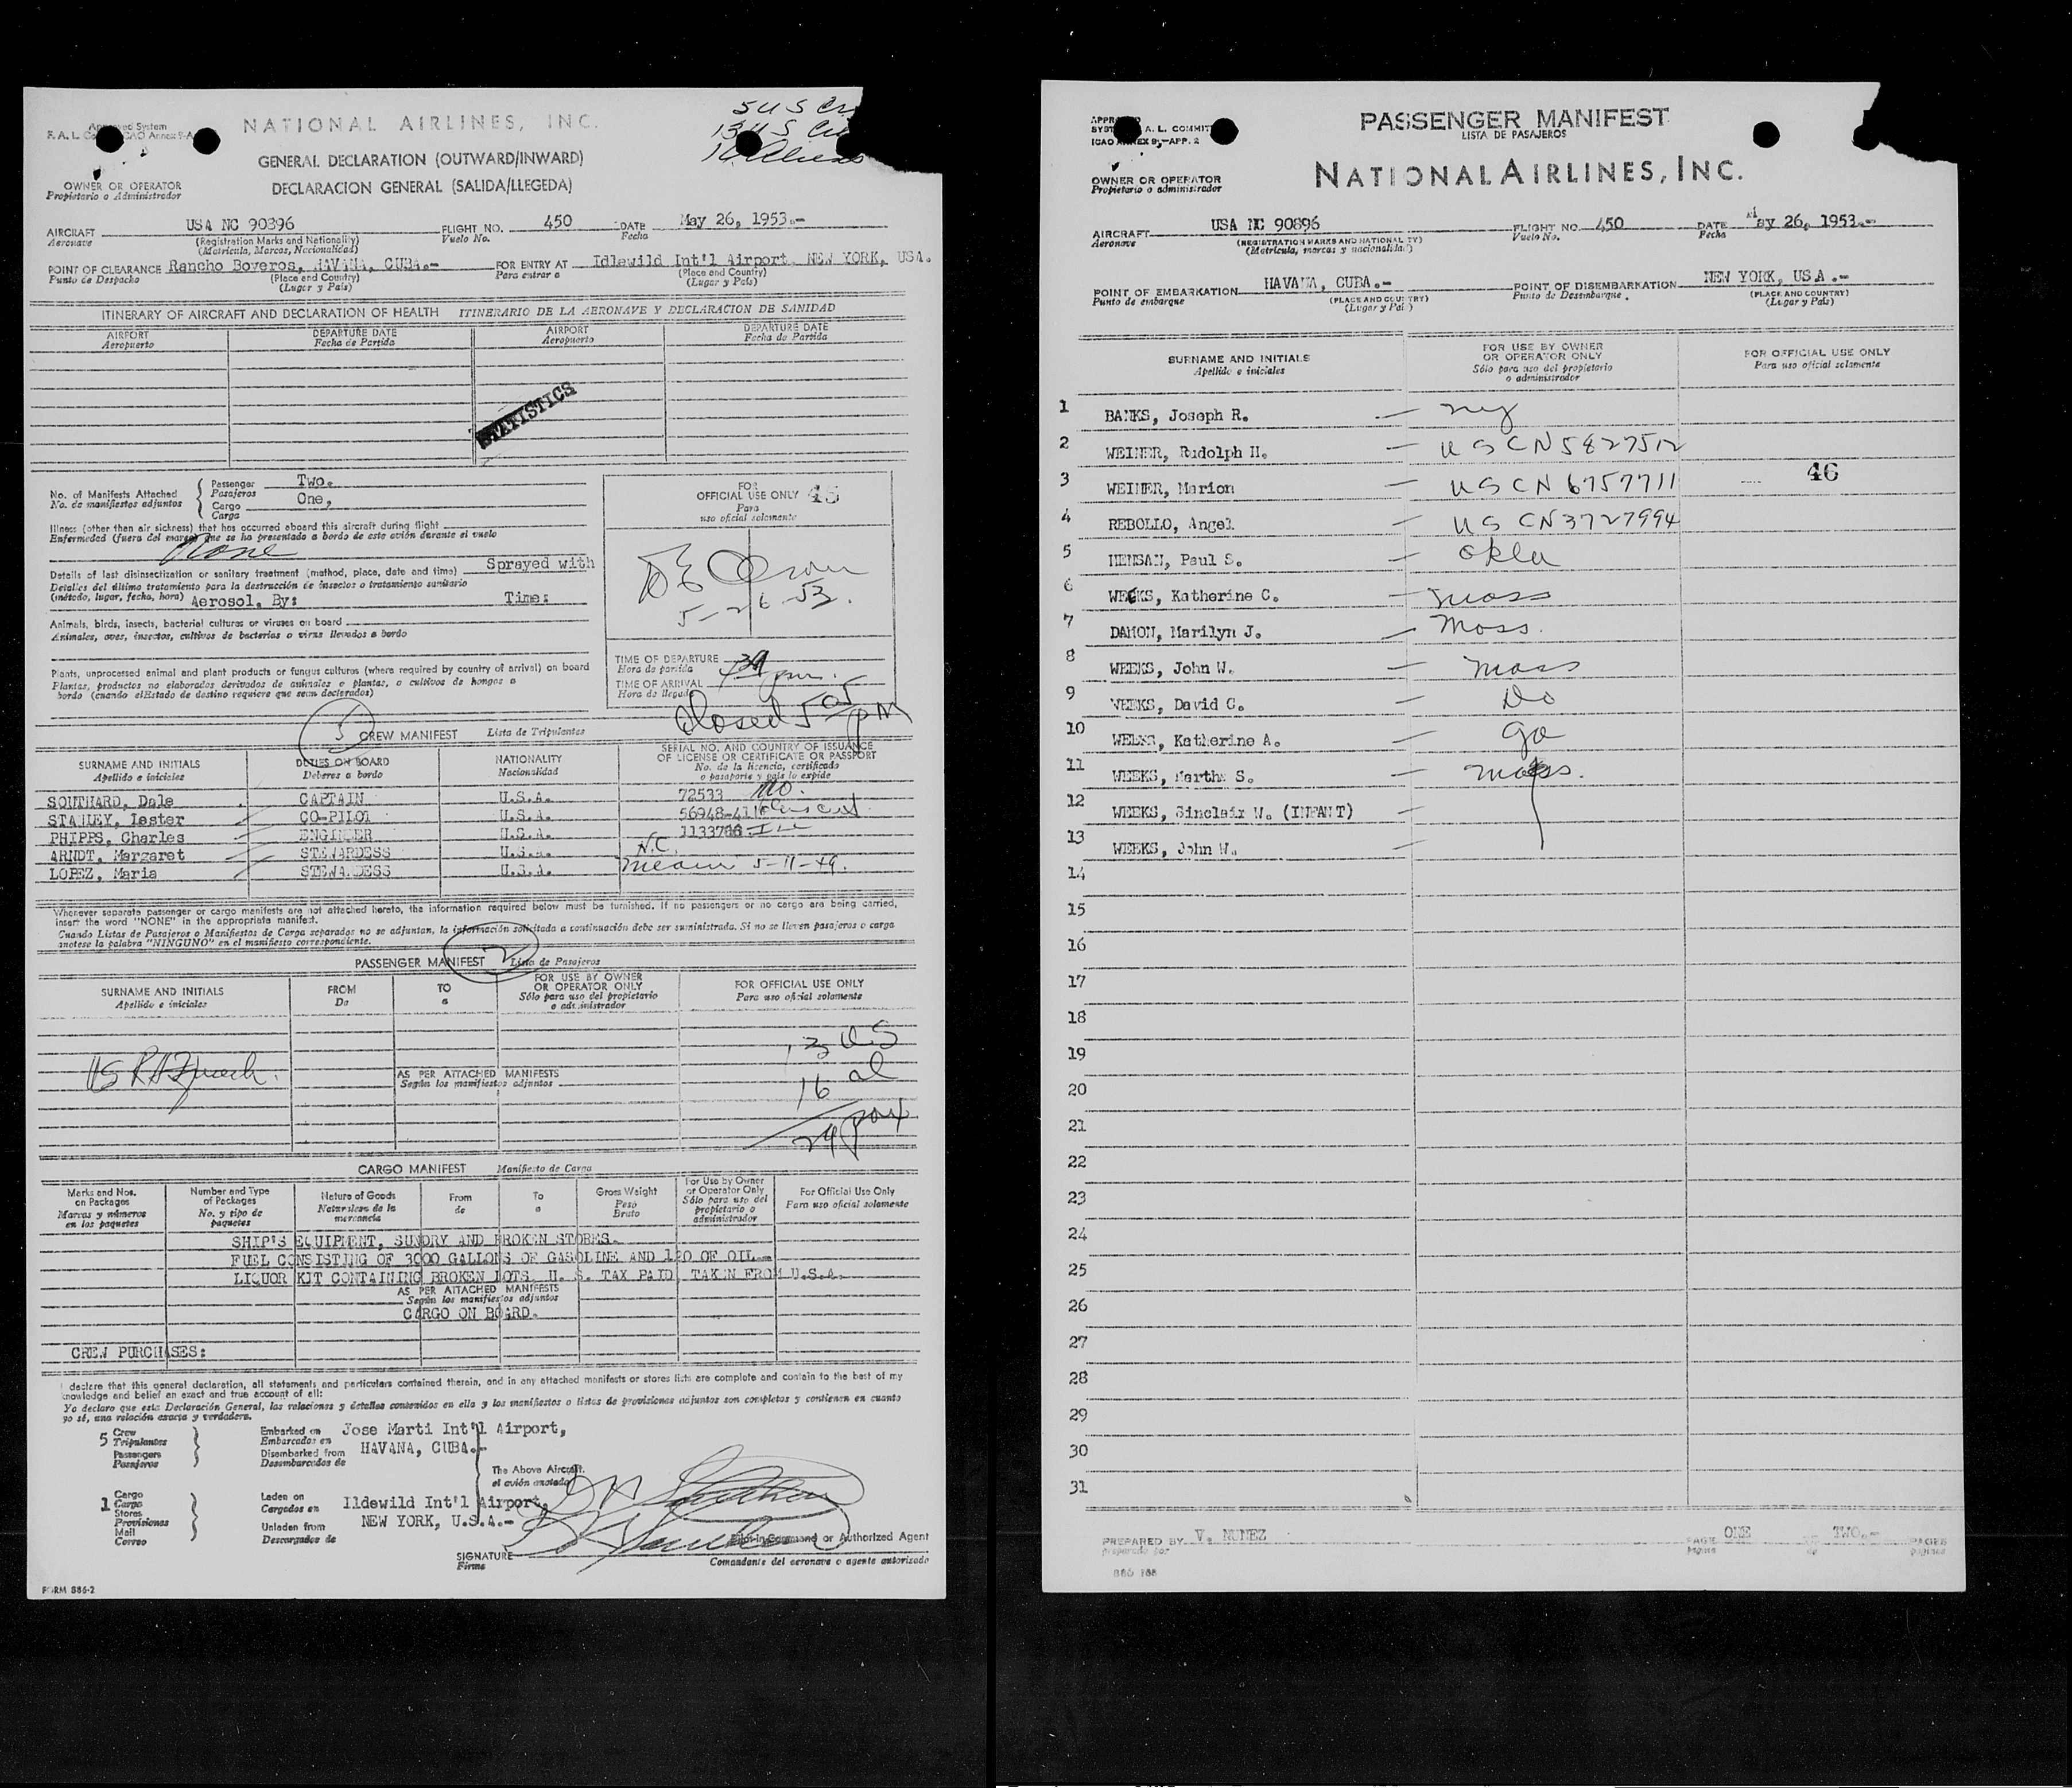 Approved System
NATIONAL AIRLINES, INC.
5 U S
13 U S
16 Aliens
GENERAL DECLARATION (OUTWARD/INWARD)
DECLARACION GENERAL (SALIDA/LLEGEDA)
OWNER OR OPERATOR
Propietario o Administrador
AIRCRAFT USA NC 90896 FLIGHT NO. 450 DATE May 26, 1953.-
Aeronave (Registration Marks and Nationality) Vuelo No. Fecha
(Matricula, Marcas, Nacionalidad)
POINT OF CLEARANCE Rancho Boyeros, HAVANA, CUBA.- FOR ENTRY AT Idlewild Int'l Airport, NEW YORK, USA.
Punto de Despacho (Place and Country) Para entrar a (Place and Country)
(Lugar y País) (Lugar y País)
ITINERARY OF AIRCRAFT AND DECLARATION OF HEALTH ITINERARIO DE LA AERONAVE Y DECLARACION DE SANIDAD
AIRPORT DEPARTURE DATE AIRPORT DEPARTURE DATE
Aeropuerto Fecha de Partida Aeropuerto Fecha de Partida
STATISTICS
No. of Manifests Attached Passenger Two.
No. de manifiestos adjuntos Pasajeros
Cargo One,
Carga
Illness (other than air sickness) that has occurred aboard this aircraft during flight
Enfermedad (fuera del mareo) que se ha presentado a bordo de este avión durante el vuelo
None
Details of last disinsectization or sanitary treatment (method, place, date and time) Sprayed with
Detalles del último tratamiento para la destrucción de insectos o tratamiento sanitario
(método, lugar, fecha, hora) Aerosol. By: Time:
Animals, birds, insects, bacterial cultures or viruses on board
Animales, aves, insectos, cultivos de bacterias o virus llevados a bordo
Plants, unprocessed animal and plant products or fungus cultures (where required by country of arrival) on board
Plantas, productos no elaborados derivados de animales o plantas, o cultivos de hongos a
bordo (cuando el Estado de destino requiere que sean declarados)
FOR
OFFICIAL USE ONLY 45
Para
uso oficial solamente
5-26-53.
TIME OF DEPARTURE
Hora de partida
TIME OF ARRIVAL
Hora de llegada
Closed 5 05 PM
5
CREW MANIFEST Lista de Tripulantes
SURNAME AND INITIALS DUTIES ON BOARD NATIONALITY SERIAL NO. AND COUNTRY OF ISSUANCE
OF LICENSE OR CERTIFICATE OR PASSPORT
Apellido e iniciales Deberes a bordo Nacionalidad No. de la licencia, certificado
o pasaporte y país lo expide
SOUTHARD, Dale CAPTAIN U.S.A. 72533 Mo.
STANLEY, Lester CO-PILOT U.S.A. 56948-41
PHIPPS, Charles ENGINEER U.S.A. 1133786 Ill
ARNDT, Margaret STEWARDESS U.S.A. N.C.
LOPEZ, Maria STEWARDESS U.S.A. Miami 5-11-49.
Whenever separate passenger or cargo manifests are not attached hereto, the information required below must be furnished. If no passengers or no cargo are being carried,
insert the word "NONE" in the appropriate manifest.
Cuando Listas de Pasajeros o Manifiestos de Carga separados no se adjuntan, la información solicitada a continuación debe ser suministrada. Si no se lleven pasajeros o carga
anotese la palabra "NINGUNO" en el manifiesto correspondiente.
2
PASSENGER MANIFEST Lista de Pasajeros
SURNAME AND INITIALS FROM TO FOR USE BY OWNER OR OPERATOR ONLY FOR OFFICIAL USE ONLY
Apellido e iniciales De a Sólo para uso del propietario o administrador Para uso oficial solamente
13 U.S
AS PER ATTACHED MANIFESTS
Según los manifiestos adjuntos
16 al
29 pax
CARGO MANIFEST Manifiesto de Carga
Marks and Nos. on Packages Number and Type of Packages Nature of Goods From To Gross Weight For Use by Owner or Operator Only For Official Use Only
Marcas y números en los paquetes No. y tipo de paquetes Naturaleza de la mercancia de a Peso Bruto Sólo para uso del propietario o administrador Para uso oficial solamente
SHIP'S EQUIPMENT, SUNDRY AND BROKEN STORES.
FUEL CONSISTING OF 3000 GALLONS OF GASOLINE AND 120 OF OIL.-
LIQUOR KIT CONTAINING BROKEN LOTS, U. S. TAX PAID, TAKEN FROM U.S.A.
AS PER ATTACHED MANIFESTS
Según los manifiestos adjuntos
CARGO ON BOARD.
CREW PURCHASES:
I declare that this general declaration, all statements and particulars contained therein, and in any attached manifests or stores lists are complete and contain to the best of my
knowledge and belief an exact and true account of all:
Yo declaro que esta Declaración General, las relaciones y detalles contenidos en ella y los manifiestos o listas de provisiones adjuntos son completos y contienen en cuanto
yo sé, una relación exacta y verdadera.
5 Crew Embarked on Jose Marti Int'l Airport,
Tripulantes Embarcados en
Passengers Disembarked from HAVANA, CUBA.-
Pasajeros Desembarcados de
The Above Aircraft.
el avión anotado
1 Cargo Laden on Ildewild Int'l Airport,
Carga Cargados en
Stores
Provisiones Unladen from NEW YORK, U.S.A.-
Mail Descargados de
Correo
Pilot-in-Command or Authorized Agent
SIGNATURE
Firma Comandante del aeronave o agente autorizado
FORM 886-2
PASSENGER MANIFEST
LISTA DE PASAJEROS
ICAO ANNEX 9,-APP. 2
NATIONAL AIRLINES, INC.
OWNER OR OPERATOR
Propietario o administrador
AIRCRAFT USA NC 90896 FLIGHT NO. 450 DATE May 26, 1953.-
Aeronave (REGISTRATION MARKS AND NATIONALITY) Vuelo No. Fecha
(Matricula, marcas y nacionalidad)
POINT OF EMBARKATION HAVANA, CUBA.- POINT OF DISEMBARKATION NEW YORK, USA.-
Punto de embarque (PLACE AND COUNTRY) Punto de Desembarque. (PLACE AND COUNTRY)
(Lugar y País) (Lugar y País)
SURNAME AND INITIALS FOR USE BY OWNER OR OPERATOR ONLY FOR OFFICIAL USE ONLY
Apellido e iniciales Sólo para uso del propietario o administrador Para uso oficial solamente
1 BANKS, Joseph R. — ny
2 WEINER, Rudolph H. — USCN5827512
3 WEINER, Marion — USCN6757711 46
4 REBOLLO, Angel — US CN3727994
5 HENSAN, Paul S. — Okla
6 WEEKS, Katherine C. — Mass
7 DAMON, Marilyn J. — Mass.
8 WEEKS, John W. — Mass
9 WEEKS, David C. — Do
10 WEEKS, Katherine A. — Ga
11 WEEKS, Martha S. — Mass.
12 WEEKS, Sinclair W. (INFANT) —
13 WEEKS, John W. —
14
15
16
17
18
19
20
21
22
23
24
25
26
27
28
29
30
31
PREPARED BY V. NUNEZ PAGE ONE OF TWO.- PAGES
preparado por página de páginas
886 188